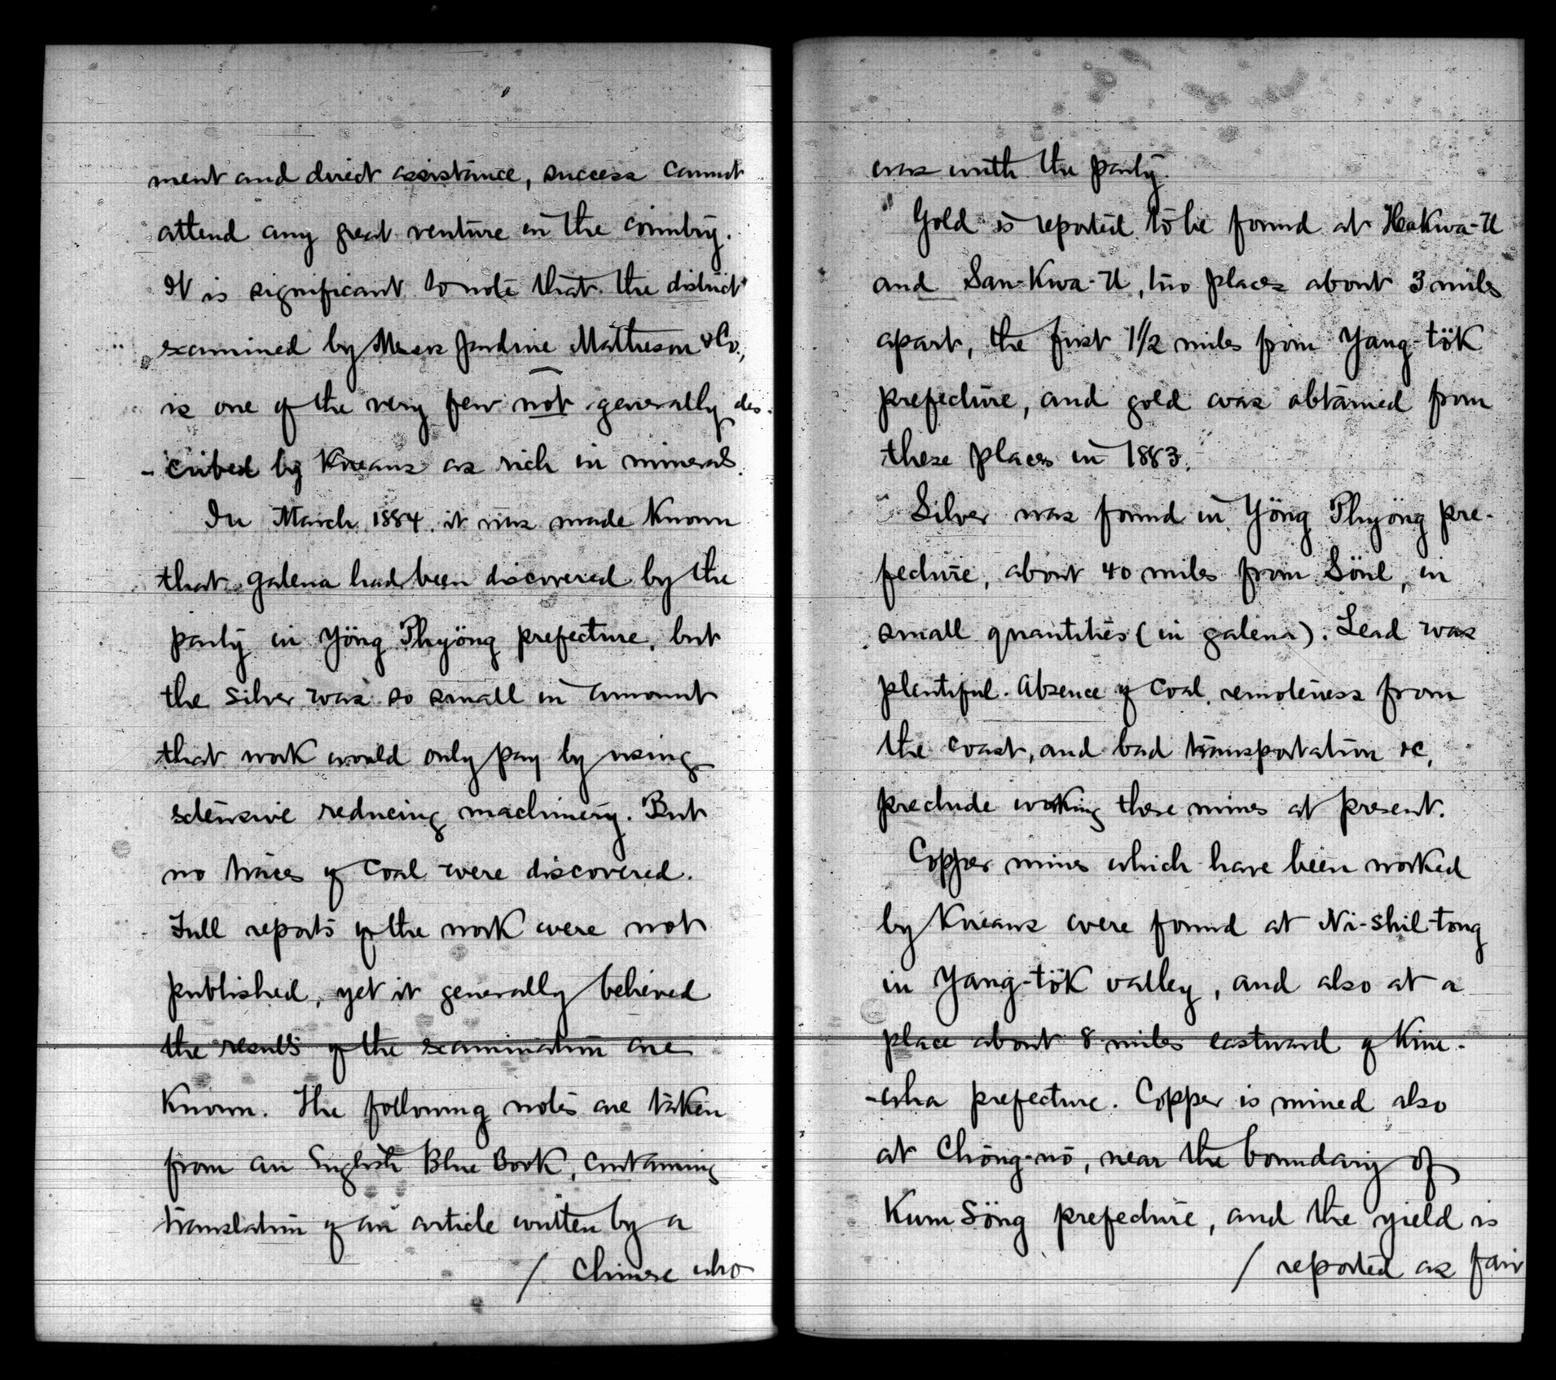 ment and direct assistance, success cannot
attend any great venture in the country.
It is significant to note that the district
examined by Messrs Jardine Matheson & Co.,
is one of the very few not generally des-
-cribed by Koreans as rich in minerals.
In March 1884, it was made known
that galena had been discovered by the
party in Yöng Phyöng prefecture, but
the silver was so small in amount
that work would only pay by using
extensive reducing machinery. But
no traces of coal were discovered.
Full reports of the work were not
published, yet it generally believed
the results of the examination are
known. The following notes are taken
from an English Blue Book, containing
translation of an article written by a
/ Chinese who
was with the party.
"Gold is reported to be found at Hakwa-U
and San-Kwa-U, two places about 3 miles
apart, the first 1 1/2 miles from Yang-tök
prefecture, and gold was obtained from
these places in 1883.
"Silver was found in Yöng Phyöng pre-
fecture, about 40 miles from Söul, in
small quantities (in galena). Lead was
plentiful. Absence of coal, remoteness from
the coast, and bad transportation &c,
preclude working these mines at present.
Copper mines which have been worked
by Koreans were found at Ni-shil-tong
in Yang-tök valley, and also at a
place about 8 miles eastward of Kim-
-wha prefecture. Copper is mined also
at Chöng-nö, near the boundary of
Kum Söng prefecture, and the yield is
/ reported as fair